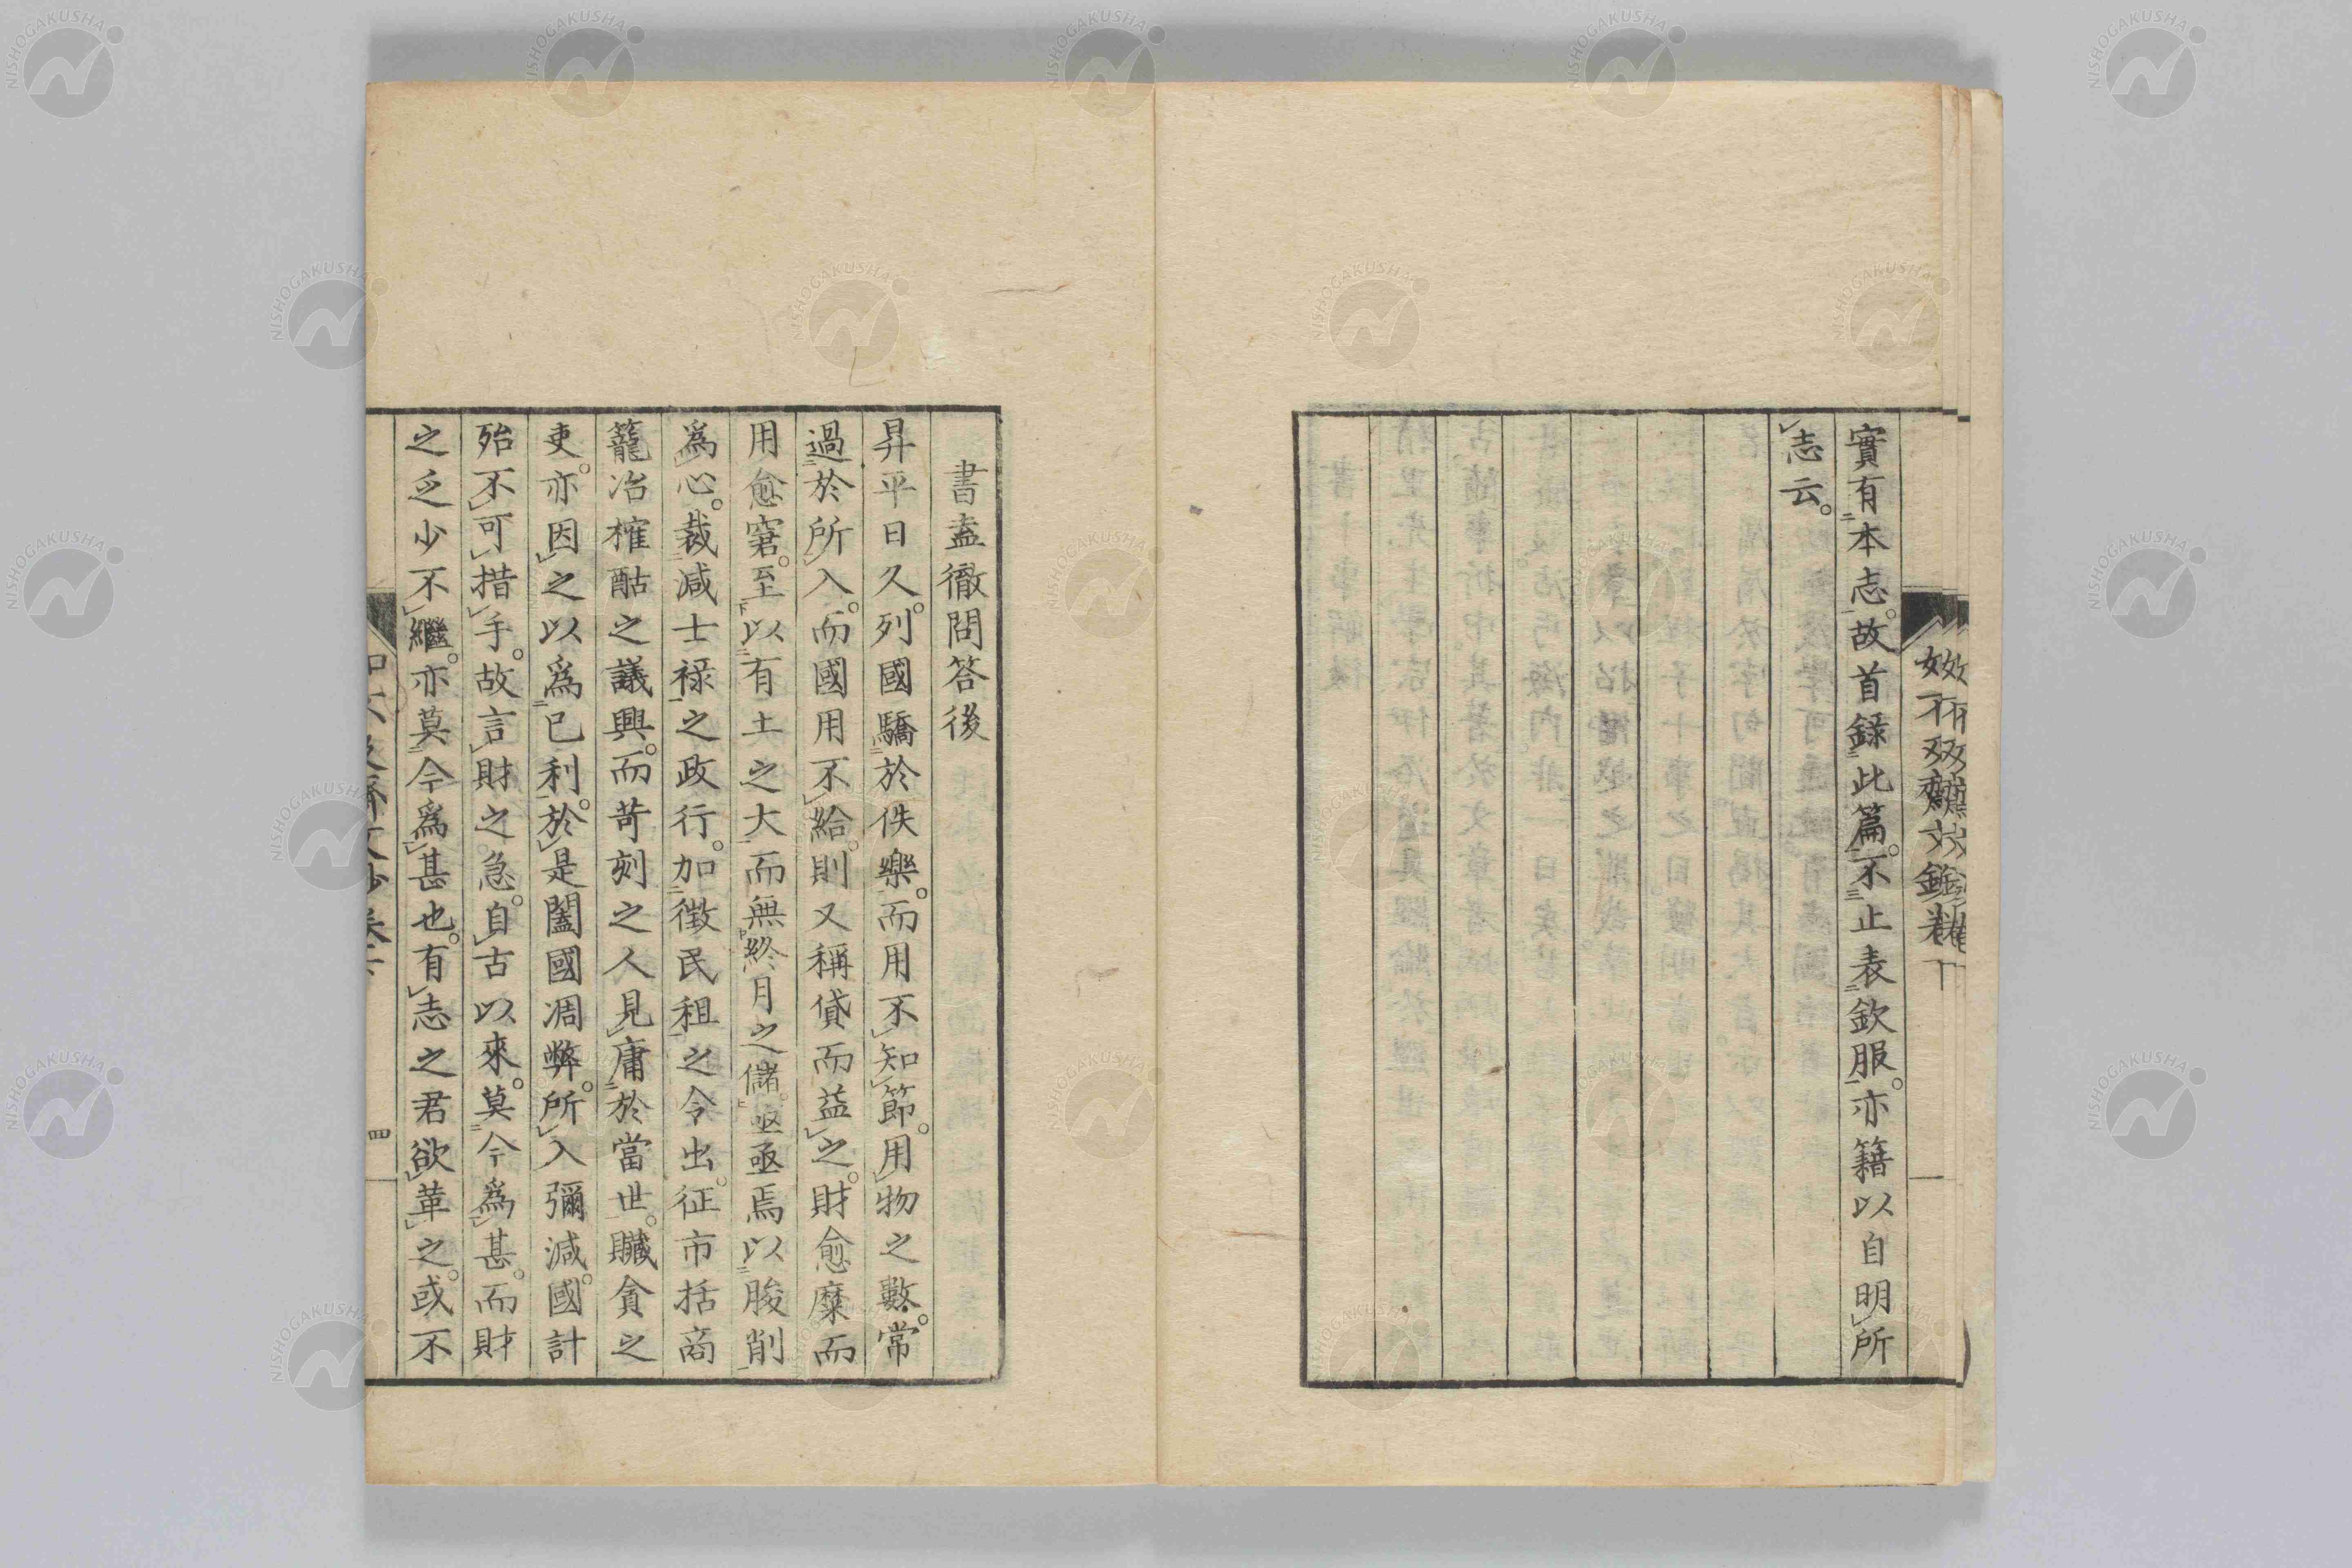 實有本志。故首録此篇。不止表欽服。亦籍以自明所
志云。
書盍徹問答後
昇平日久。列國驕於佚樂。而用不知節。用物之數。常
過於所入。而國用不給。則又稱貸而益之。財愈糜而
用愈窘。至以有土之大而無終月之儲。亟亟焉以朘削
為心。裁減士祿之政行。加徴民租之令出。征市括商
籠冶榷酤之議興。而苛刻之人見庸於當世。贓貪之
吏。亦因之以為已利。於是闔國凋弊。所入彌減。國計
殆不可措手。故言財之急。自古以來。莫今為甚。而財
之乏少不繼。亦莫今為甚也。有志之君欲革之。或不
四
NISHOGAKUSHA